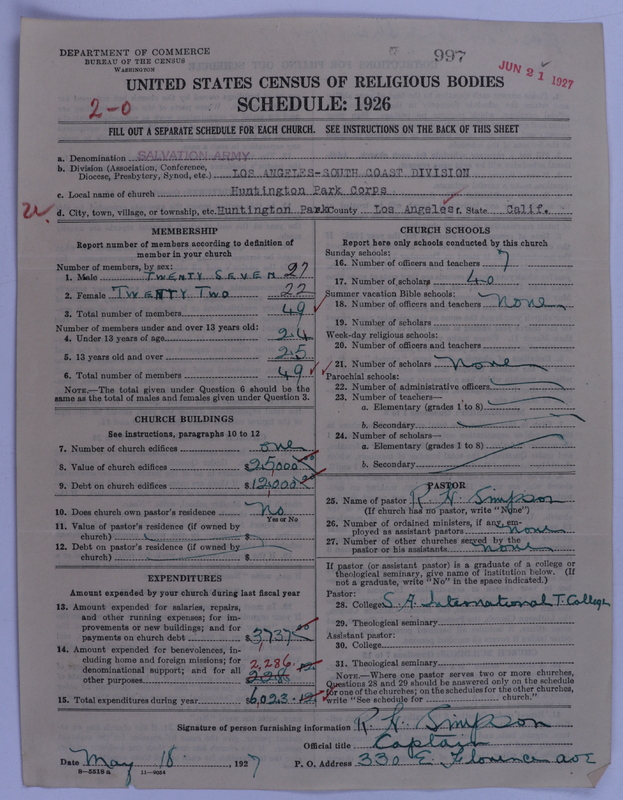 DEPARTMENT OF COMMERCE
BUREAU OF THE CENSUS
WASHINGTON
997
JUN 21 1927
UNITED STATES CENSUS OF RELIGIOUS BODIES
SCHEDULE: 1926
2-0
FILL OUT A SEPARATE SCHEDULE FOR EACH CHURCH. SEE INSTRUCTIONS ON THE BACK OF THIS SHEET
a. Denomination SALVATION ARMY
b. Division (Association, Conference,
Diocese, Presbytery, Synod, etc.) LOS ANGELES-SOUTH COAST DIVISION
c. Local name of church Huntington Park Corps
d. City, town, village, or township, etc. Huntington Park County Los Angeles f. State Calif.
MEMBERSHIP
Report number of members according to definition of
member in your church
Number of members, by sex:
1. Male TWENTY SEVEN 27
2. Female TWENTY TWO 22
3. Total number of members 49
Number of members under and over 13 years old:
4. Under 13 years of age 24
5. 13 years old and over 25
6. Total number of members 49
NOTE.—The total given under Question 6 should be the
same as the total of males and females given under Question 3.
CHURCH BUILDINGS
See instructions, paragraphs 10 to 12
7. Number of church edifices one
8. Value of church edifices $25,000
9. Debt on church edifices $12,000
10. Does church own pastor's residence No
Yes or No
11. Value of pastor's residence (if owned by
church) $
12. Debt on pastor's residence (if owned by
church) $
EXPENDITURES
Amount expended by your church during last fiscal year
13. Amount expended for salaries, repairs,
and other running expenses; for im-
provements or new buildings; and for
payments on church debt $3737 00
14. Amount expended for benevolences, in-
cluding home and foreign missions; for
denominational support; and for all
other purposes 2,286
15. Total expenditures during year $6023.12
CHURCH SCHOOLS
Report here only schools conducted by this church
Sunday schools:
16. Number of officers and teachers 7
17. Number of scholars 40
Summer vacation Bible schools:
18. Number of officers and teachers None
19. Number of scholars
Week-day religious schools:
20. Number of officers and teachers
21. Number of scholars None
Parochial schools:
22. Number of administrative officers
23. Number of teachers—
a. Elementary (grades 1 to 8)
b. Secondary
24. Number of scholars—
a. Elementary (grades 1 to 8)
b. Secondary
PASTOR
25. Name of pastor R H Simpson
(If church has no pastor, write "None")
26. Number of ordained ministers, if any, em-
ployed as assistant pastors none
27. Number of other churches served by the
pastor or his assistants none
If pastor (or assistant pastor) is a graduate of a college or
theological seminary, give name of institution below. (If
not a graduate, write "No" in the space indicated.)
Pastor:
28. College S. A. International T. College
29. Theological seminary
Assistant pastor:
30. College
31. Theological seminary
NOTE.—Where one pastor serves two or more churches,
Questions 28 and 29 should be answered only on the schedule
for one of the churches; on the schedules for the other churches,
write "See schedule for church."
Signature of person furnishing information R. H. Simpson
Official title Captain
Date May 18, 1927 P. O. Address 330 E. Florence ave
8-5518 a 11-9664